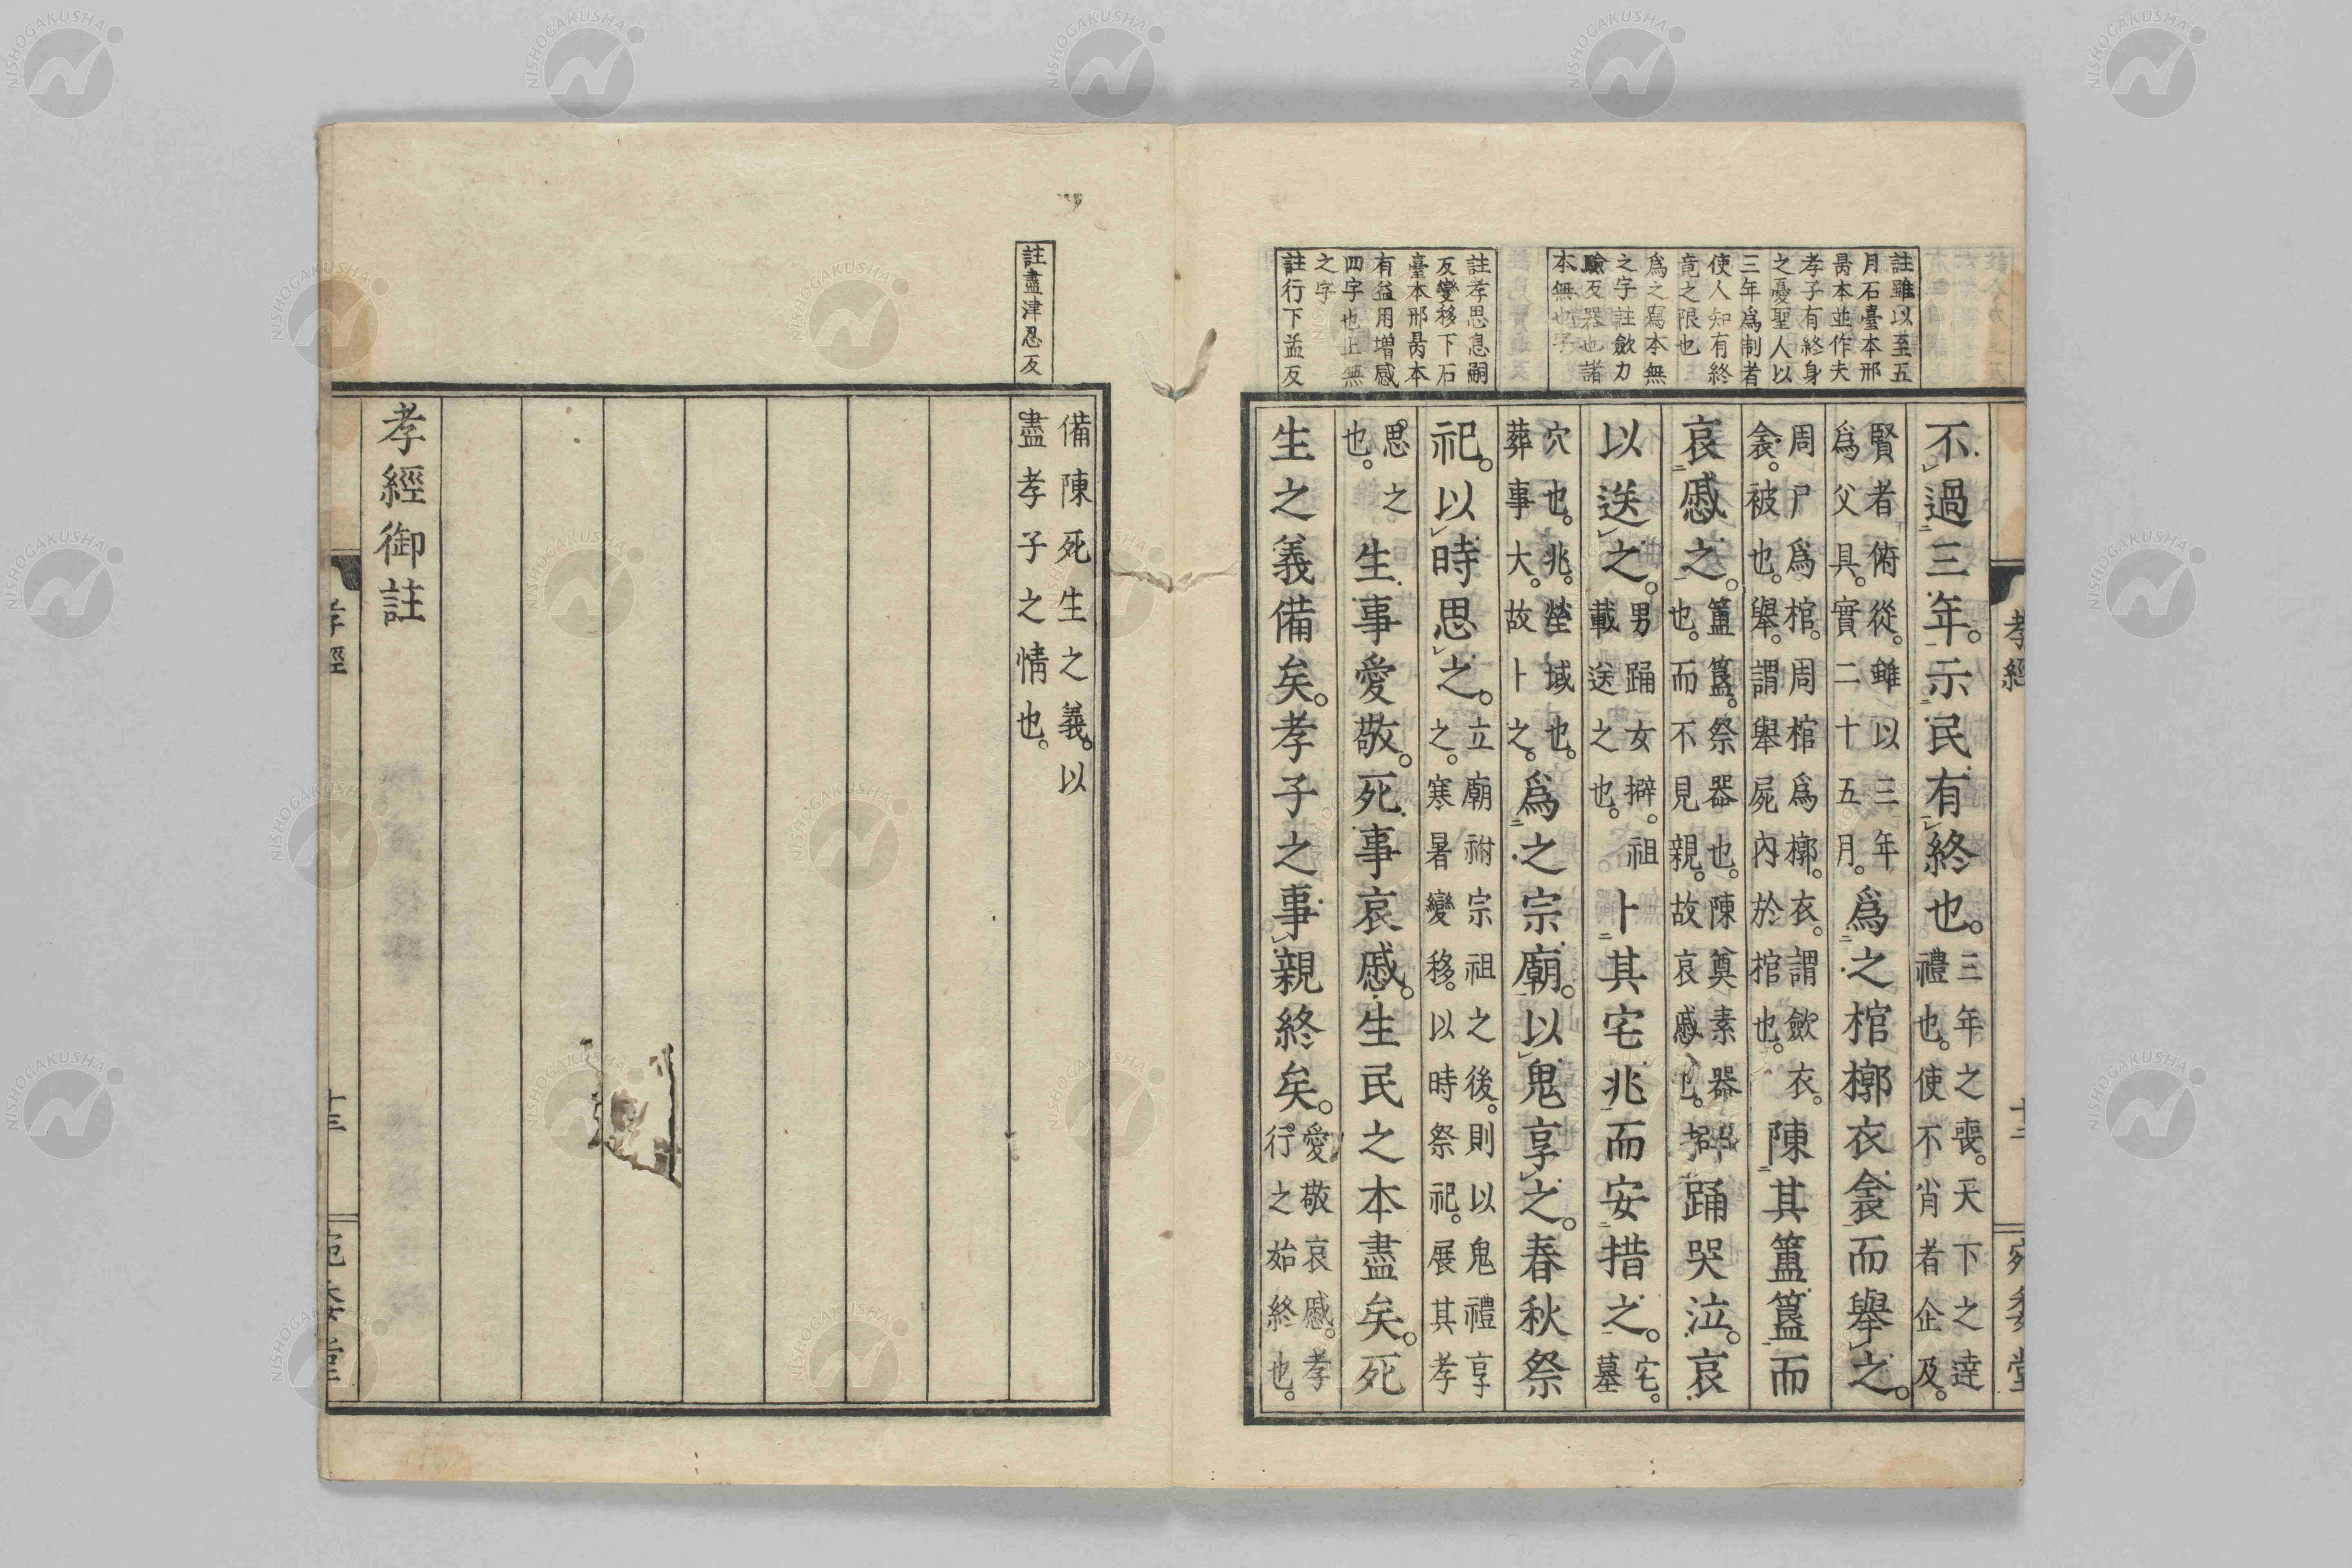 註雖以至五
月石臺本邢
昺本並作夫
孝子有終身
之憂聖人以
三年爲制者
使人知有終
竟之限也
爲之寫本無
之字註斂力
驗反器也諸
本無也字
註孝思息嗣
反變移下石
臺本邢昺本
有益用增感
四字也上無
之字
註行下孟反
孝經
十二
宛委堂
不過三年。示民有終也。三年之喪。天下之達
禮也。使不肖者企及。
賢者俯從。雖以三年
爲父具。實二十五月。爲之棺槨衣衾而舉之。
周尸爲棺。周棺爲槨。衣。謂斂衣。
衾。被也。舉。謂舉屍內於棺也。陳其簠簋而
哀慼之。簠簋。祭器也。陳奠素器
也。而不見親。故哀慼也。擗踊哭泣。哀
以送之。男踊女擗。祖
載送之也。卜其宅兆而安措之。宅。
墓
穴也。兆。塋域也。
葬事大。故卜之。爲之宗廟。以鬼享之。春秋祭
祀。以時思之。立廟祔宗祖之後。則以鬼禮享
之。寒暑變移。以時祭祀。展其孝
思之
也。生事愛敬。死事哀慼。生民之本盡矣。死
生之義備矣。孝子之事親終矣。愛敬哀慼。孝
行之始終也。
註盡津忍反
備陳死生之義。以
盡孝子之情也。
孝經御註
孝經
十三
NISHOGAKUSHA